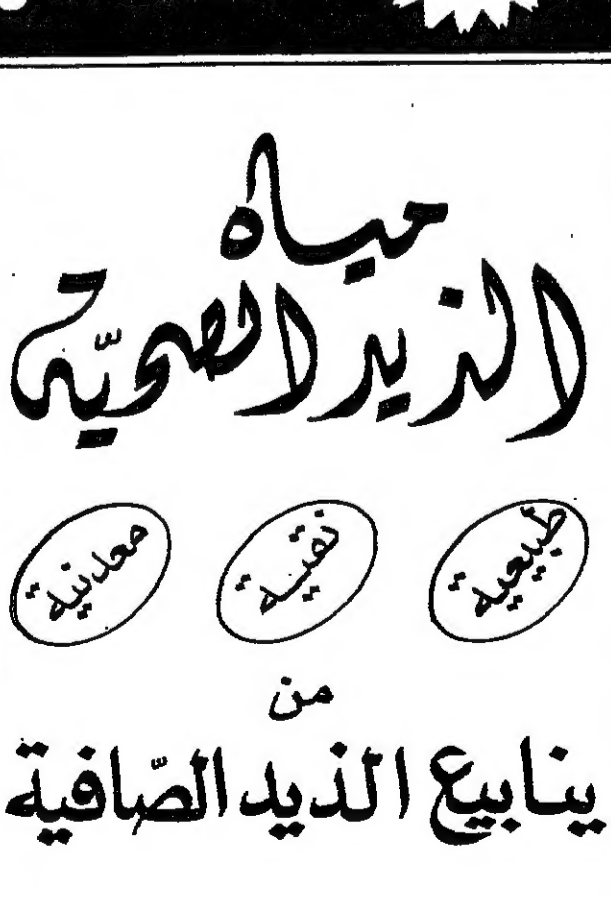 مياه
الذيد الصحيّة
طبيعية نقية معدنية
من
ينابيع الذيد الصّافية